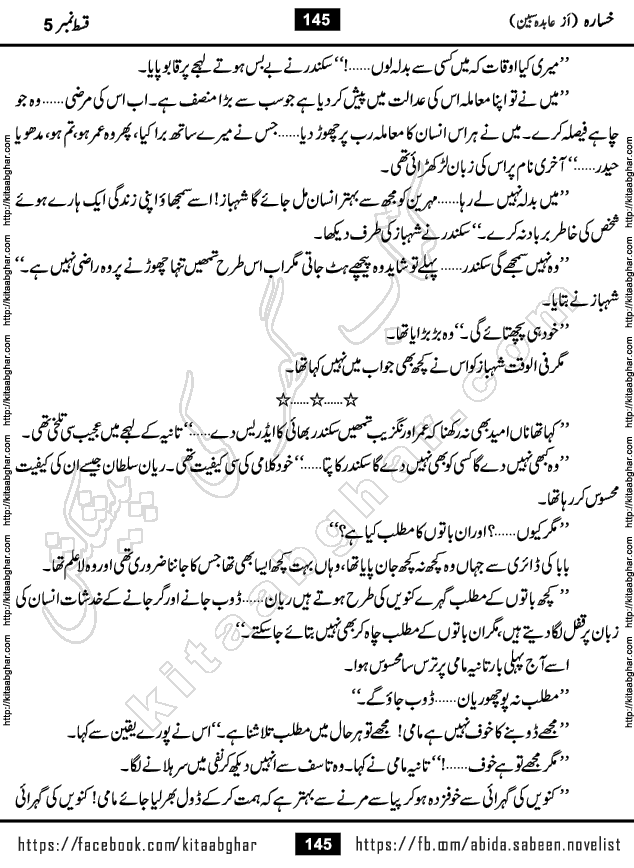 خسارہ (از عابدہ سبین)
145
قسط نمبر 5
’’میری کیا اوقات کہ میں کسی سے بدلہ لوں......!‘‘ سکندر نے بے بس ہوتے لہجے پر قابو پایا۔
’’میں نے تو اپنا معاملہ اس کی عدالت میں پیش کر دیا ہے جو سب سے بڑا منصف ہے۔ اب اس کی مرضی...... وہ جو
چاہے فیصلہ کرے۔ میں نے ہر اس انسان کا معاملہ رب پر چھوڑ دیا......جس نے میرے ساتھ برا کیا، پھر وہ عمر ہو، تم ہو، مدھو یا
حیدر......‘‘ آخری نام پر اس کی زبان لڑکھڑائی تھی۔
’’میں بدلہ نہیں لے رہا......مہرین کو مجھ سے بہتر انسان مل جائے گا شہباز! اسے سمجھاؤ اپنی زندگی ایک ہارے ہوئے
شخص کی خاطر برباد نہ کرے۔‘‘ سکندر نے شہباز کی طرف دیکھا۔
’’وہ نہیں سمجھے گی سکندر...... پہلے تو شاید وہ پیچھے ہٹ جاتی مگر اب اس طرح تمھیں تنہا چھوڑنے پر وہ راضی نہیں ہے۔‘‘
شہباز نے بتایا۔
’’خود ہی پچھتائے گی۔‘‘ وہ بڑبڑایا تھا۔
مگر فی الوقت شہباز کو اس نے کچھ بھی جواب میں نہیں کہا تھا۔
☆......☆......☆
’’کہا تھا ناں امید بھی نہ رکھنا کہ عمر اور نگزیب تمھیں سکندر بھائی کا ایڈریس دے......‘‘ تانیہ کے لہجے میں عجیب سی تلخی تھی۔
’’وہ کبھی نہیں دے گا کسی کو بھی نہیں دے گا سکندر کا پتا......‘‘ خود کلامی کی سی کیفیت تھی۔ ریان سلطان جیسے ان کی کیفیت
محسوس کر رہا تھا۔
’’مگر کیوں......؟ اور ان باتوں کا مطلب کیا ہے؟‘‘
بابا کی ڈائری سے جہاں وہ کچھ نہ کچھ جان پایا تھا، وہاں بہت کچھ ایسا بھی تھا جس کا جاننا ضروری تھی اور وہ لاعلم تھا۔
’’کچھ باتوں کے مطلب گہرے کنویں کی طرح ہوتے ہیں ریان...... ڈوب جانے اور گر جانے کے خدشات انسان کی
زبان پر قفل لگا دیتے ہیں، مگر ان باتوں کے مطلب چاہ کر بھی نہیں بتائے جا سکتے۔‘‘
اسے آج پہلی بار تانیہ مامی پر ترس سا محسوس ہوا۔
’’مطلب نہ پوچھو ریان...... ڈوب جاؤ گے۔‘‘
’’مجھے ڈوبنے کا خوف نہیں ہے مامی! مجھے تو ہر حال میں مطلب تلاشنا ہے۔‘‘ اس نے پورے یقین سے کہا۔
’’مگر مجھے تو ہے خوف......!‘‘ تانیہ مامی نے کہا۔ وہ تاسف سے انہیں دیکھ کر نفی میں سر ہلانے لگا۔
’’کنویں کی گہرائی سے خوفزدہ ہو کر پیاسے مرنے سے بہتر ہے کہ ہمت کر کے ڈول بھر لیا جائے مامی! کنویں کی گہرائی
کتاب گھر کی پیشکش
kitaabghar.com
http://kitaabghar.com http://kitaabghar.com http://kitaabghar.com http://kitaabghar.com http://kitaabghar.com http://kitaabghar.com
http://kitaabghar.com http://kitaabghar.com http://kitaabghar.com http://kitaabghar.com http://kitaabghar.com http://kitaabghar.com
https://facebook.com/kitaabghar
145
https://fb.com/abida.sabeen.novelist